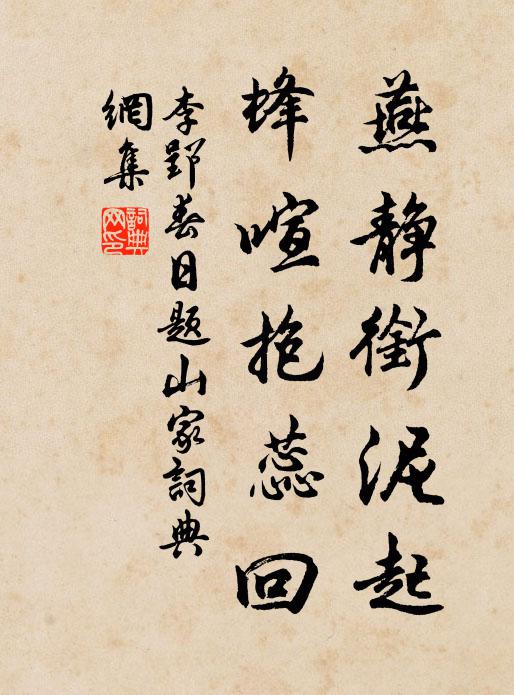 燕静銜泥起
蜂喧抱蕊回
李郢春日題山家詞典
網集
詞典
网印